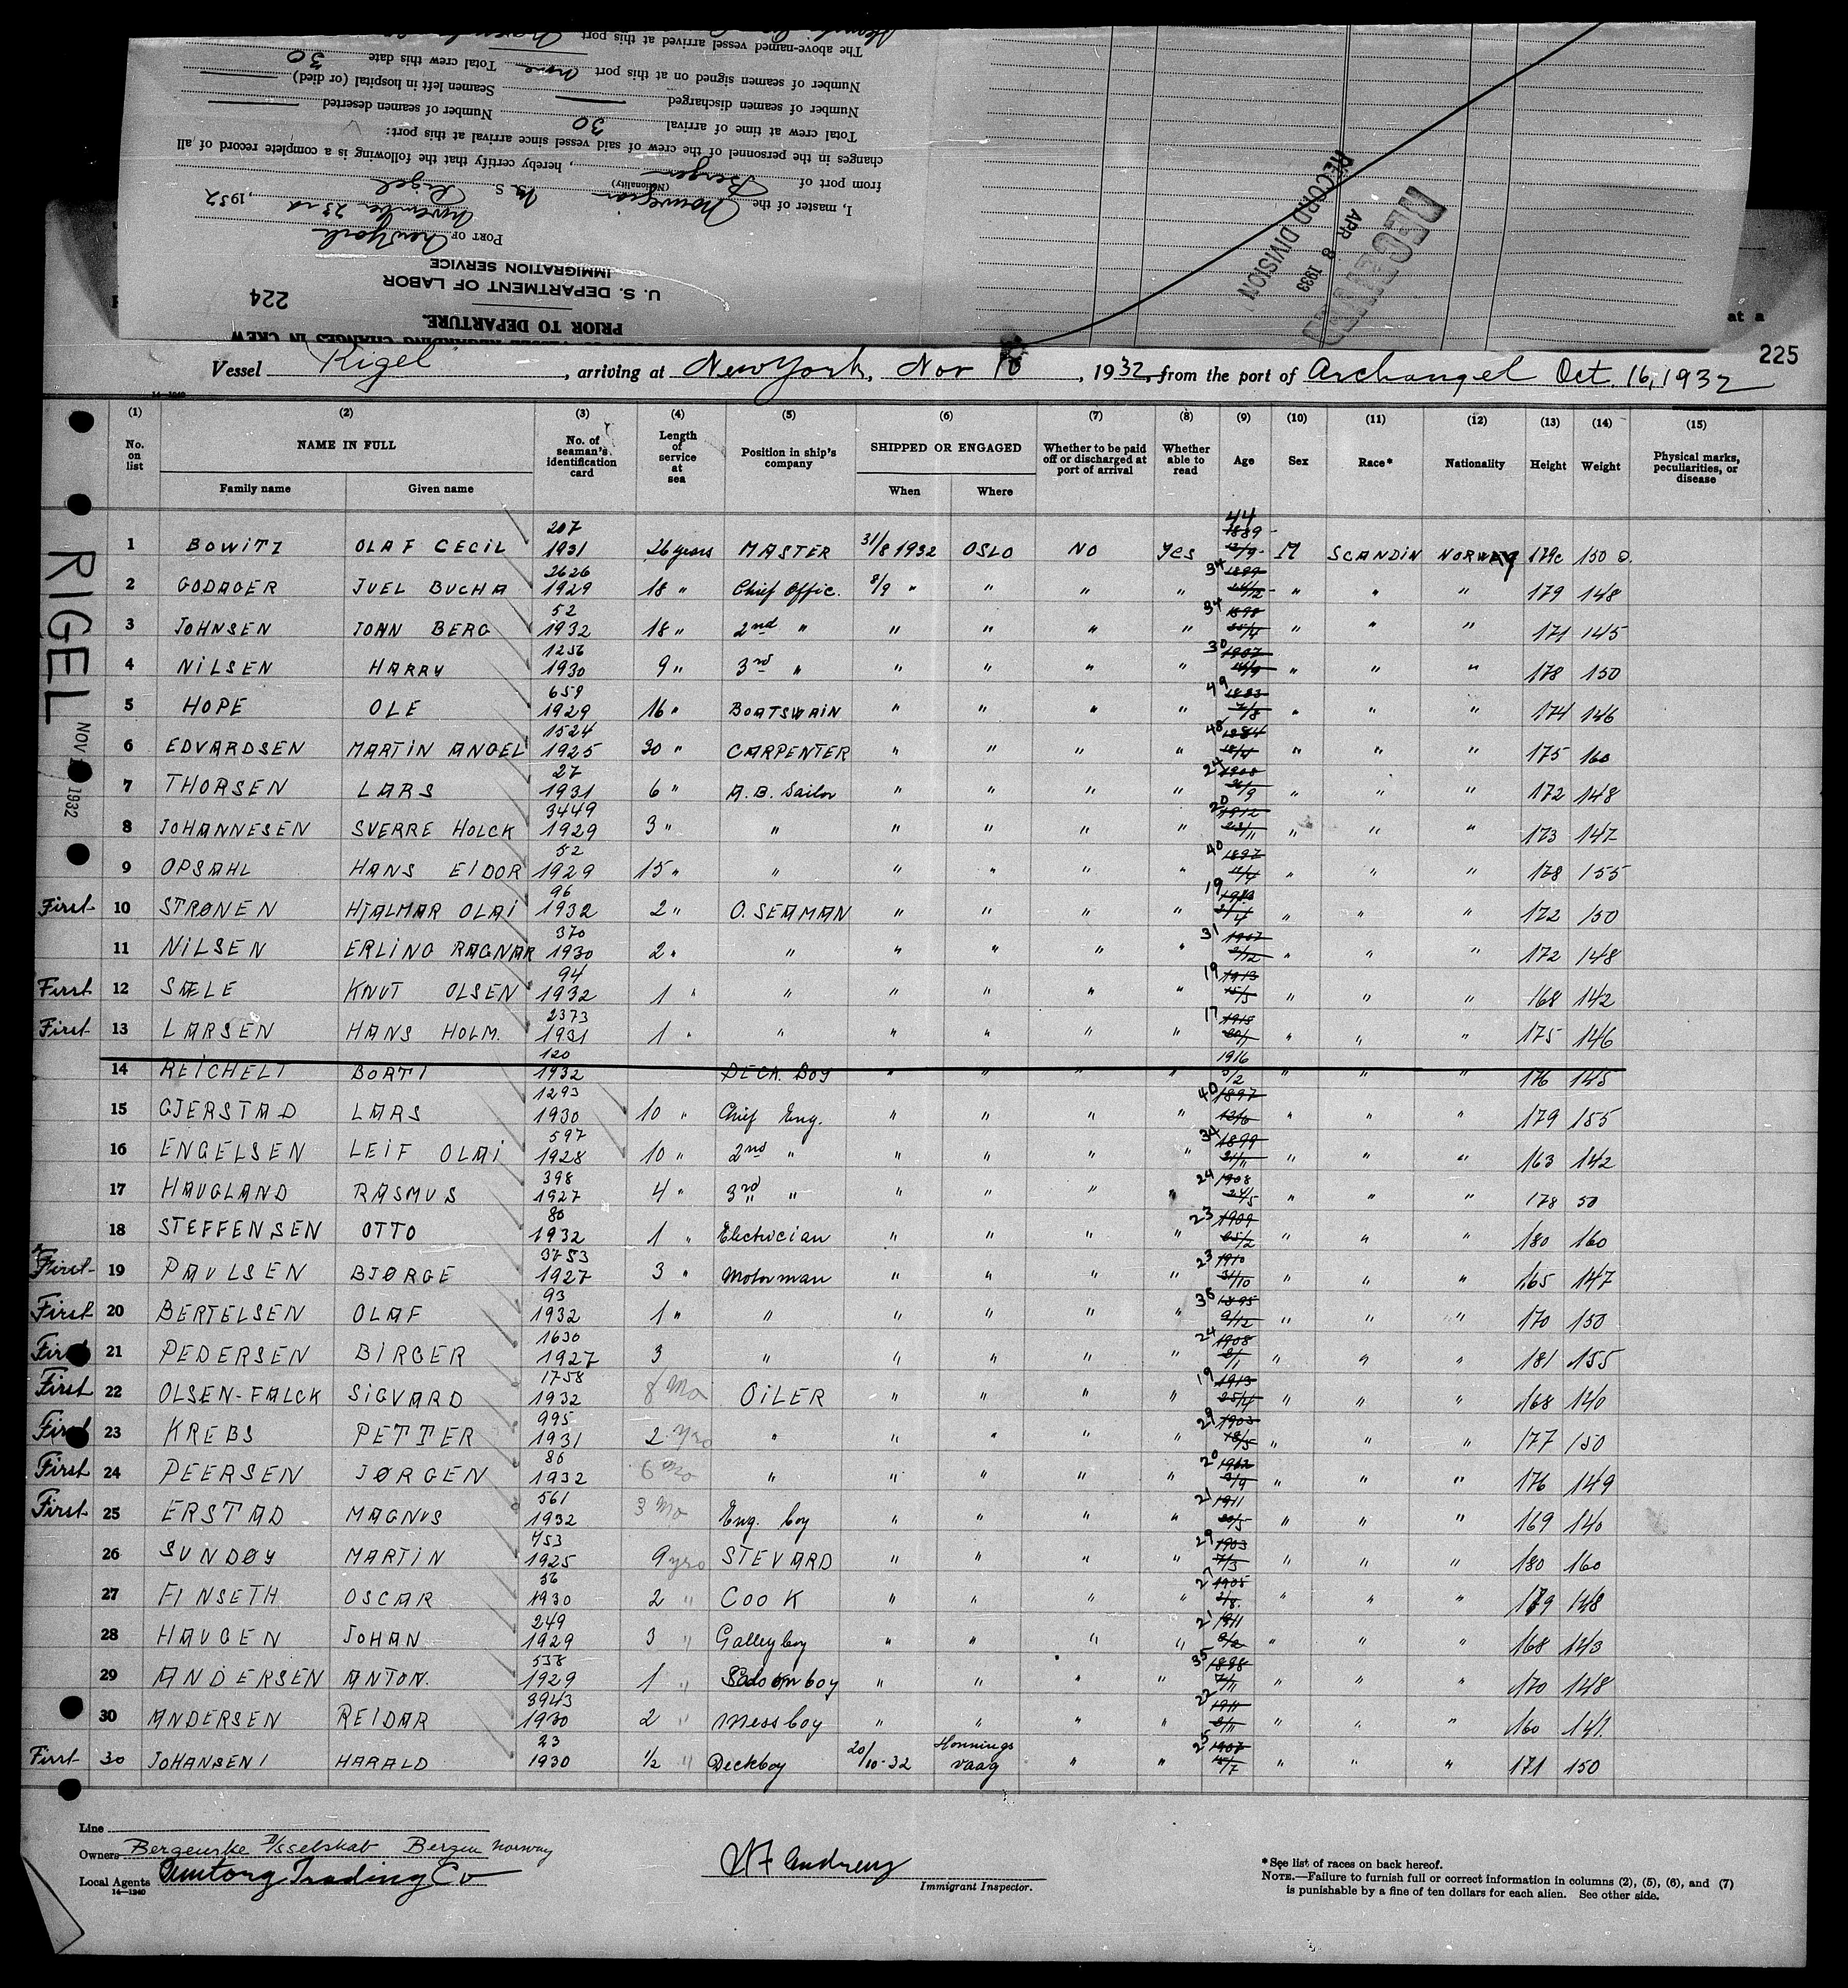 The above-named vessel arrived at this port
Number of seamen signed on at this port none Total crew this date 30
Number of seamen discharged Seamen left in hospital (or died)
Total crew at time of arrival 30 Number of seamen deserted
changes in the personnel of the crew of said vessel since arrival at this port:
from port of Bergen, hereby certify that the following is a complete record of all
I, master of the Norwegian (Nationality) M S. Rigel
PORT OF New York November 23rd, 1932
IMMIGRATION SERVICE
U. S. DEPARTMENT OF LABOR
224
PRIOR TO DEPARTURE.
REGARDING CHANGES IN CREW
RECEIVED
APR 8 1933
RECORD DIVISION
at a
225
Vessel Rigel, arriving at New York, Nov 18, 1932, from the port of Archangel Oct. 16, 1932
14—1240
(1) (2) (3) (4) (5) (6) (7) (8) (9) (10) (11) (12) (13) (14) (15)
No. on list NAME IN FULL No. of seaman's identification card Length of service at sea Position in ship's company SHIPPED OR ENGAGED Whether to be paid off or discharged at port of arrival Whether able to read Age Sex Race* Nationality Height Weight Physical marks, peculiarities, or disease
Family name Given name When Where
RIGEL
NOV 1932
1 BOWITZ OLAF CECIL 207 1931 26 years MASTER 31/8 1932 OSLO NO yes 44 1889 M SCANDIN NORWAY 179c 150
2 GODAGER JUEL BUCHA 2626 1929 18 " Chief Offic. 8/9 " " " " 34 1899 " " " 179 148
3 JOHNSEN JOHN BERG 52 1932 18 " 2nd " " " " " 34 1898 " " " 171 145
4 NILSEN HARRY 1256 1930 9 " 3rd " " " " " 30 1907 " " " 178 150
5 HOPE OLE 659 1929 16 " BOATSWAIN " " " " 49 1883 " " " 174 146
6 EDVARDSEN MARTIN ANGEL 1524 1925 30 " CARPENTER " " " " 48 1884 " " " 175 160
7 THORSEN LARS 27 1931 6 " A.B. Sailor " " " " 24 1908 " " " 172 148
8 JOHANNESEN SVERRE HOLCK 3449 1929 3 " " " " " " 20 1912 23/11 " " " 173 147
9 OPSAHL HANS EIDOR 52 1929 15 " " " " " " 40 1897 " " " 178 155
First 10 STRØNEN HJALMAR OLAI 96 1932 2 " O. SEAMAN " " " " 19 1913 " " " 172 150
11 NILSEN ERLING RAGNAR 370 1930 2 " " " " " " 31 1907 " " " 172 148
First 12 SÆLE KNUT OLSEN 94 1932 1 " " " " " " 19 1913 15/5 " " " 168 142
First 13 LARSEN HANS HOLM. 2373 1931 1 " " " " " " 17 1915 " " " 175 146
14 REICHELT BORTI 120 1932 DECK BOY " " " " 1916 5/2 " " " 176 145
15 GJERSTAD LARS 1293 1930 10 " Chief Eng. " " " " 40 1897 " " " 179 155
16 ENGELSEN LEIF OLAI 597 1928 10 " 2nd " " " " " 34 1899 " " " 163 142
17 HAUGLAND RASMUS 398 1927 4 " 3rd " " " " " 24 1908 24/5 " " " 178 50
18 STEFFENSEN OTTO 80 1932 1 " Electrician " " " " 23 1909 " " " 180 160
First 19 PAULSEN BJØRGE 3753 1927 3 " Motorman " " " " 23 1910 31/10 " " " 165 147
First 20 BERTELSEN OLAF 93 1932 1 " " " " " " 36 1895 9/12 " " " 170 150
First 21 PEDERSEN BIRGER 1630 1927 3 " " " " " 24 1908 " " " 181 155
First 22 OLSEN-FALCK SIGVARD 1758 1932 8 Mo OILER " " " " 19 1913 25/4 " " " 168 140
First 23 KREBS PETTER 995 1931 2 yrs " " " " " 29 1903 18/5 " " " 177 150
First 24 PEERSEN JØRGEN 86 1932 6 mo " " " " " 20 1912 " " " 176 149
First 25 ERSTAD MAGNUS 561 1932 3 Mo Eng. boy " " " " 21 1911 " " " 169 140
26 SUNDØY MARTIN 453 1925 9 yrs STEVARD " " " " 29 1903 7/3 " " " 180 160
27 FINSETH OSCAR 56 1930 2 " COOK " " " " 27 1905 " " " 179 148
28 HAUGEN JOHAN 249 1929 3 " Galleyboy " " " " 21 1911 " " " 168 143
29 ANDERSEN ANTON. 538 1929 1 " Saloonboy " " " " 35 1898 7/11 " " " 170 148
30 ANDERSEN REIDAR 3943 1930 2 " Messboy " " " " 22 1911 " " " 160 141.
First 30 JOHANSEN HARALD 23 1930 1/2 " Deckboy 20/10-32 Honningsvaag " " 25 1907 " " " 171 150
Line
Owners Bergenske D/sselskab Bergen Norway
Local Agents Amtorg Trading Co
14—1240
Immigrant Inspector.
*See list of races on back hereof.
NOTE.—Failure to furnish full or correct information in columns (2), (5), (6), and (7)
is punishable by a fine of ten dollars for each alien. See other side.